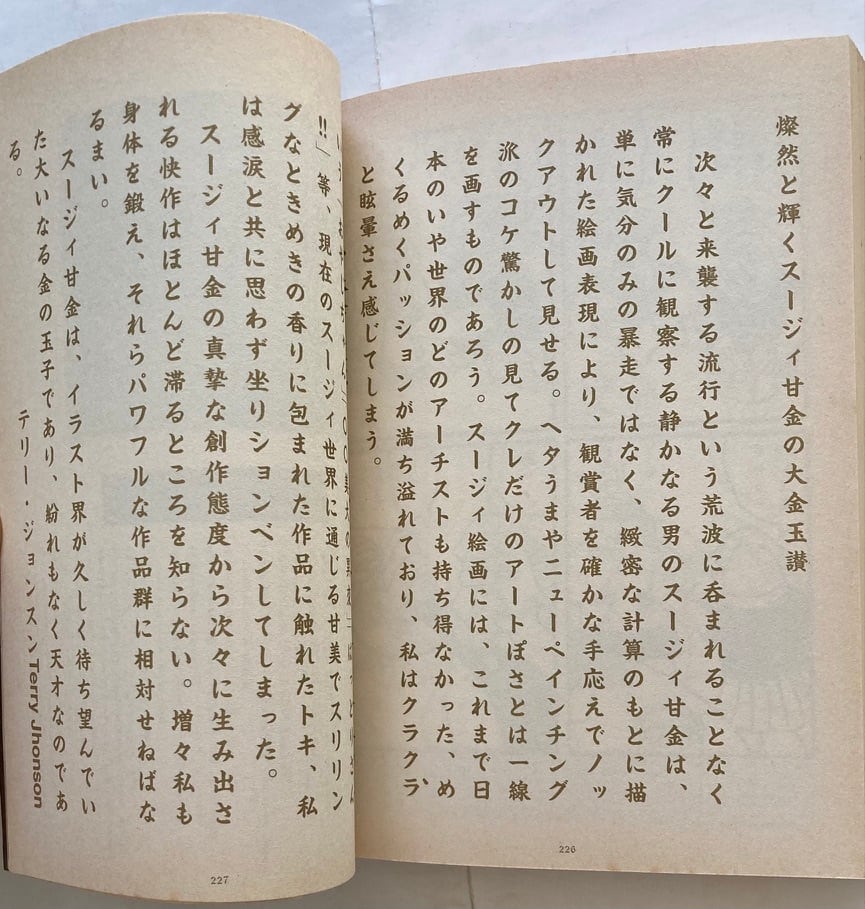 燦然と輝くスージィ甘金の大金玉讃
次々と来襲する流行という荒波に呑まれることなく
常にクールに観察する静かなる男のスージィ甘金は、
単に気分のみの暴走ではなく、緻密な計算のもとに描
かれた絵画表現により、観賞者を確かな手応えでノッ
クアウトして見せる。ヘタうまやニューペインチング
派のコケ驚かしの見てクレだけのアートぽさとは一線
を画すものであろう。スージィ絵画には、これまで日
本のいや世界のどのアーチストも持ち得なかった、め
くるめくパッションが満ち溢れており、私はクラクラ
と眩暈さえ感じてしまう。
226
!!」等、現在のスージィ世界に通じる甘美でスリリン
グなときめきの香りに包まれた作品に触れたトキ、私
は感涙と共に思わず坐りションベンしてしまった。
スージィ甘金の真摯な創作態度から次々に生み出さ
れる快作はほとんど滞るところを知らない。増々私も
身体を鍛え、それらパワフルな作品群に相対せねばな
るまい。
スージィ甘金は、イラスト界が久しく待ち望んでい
た大いなる金の玉子であり、紛れもなく天才なのであ
る。
テリー・ジョンスンTerry Jhonson
227